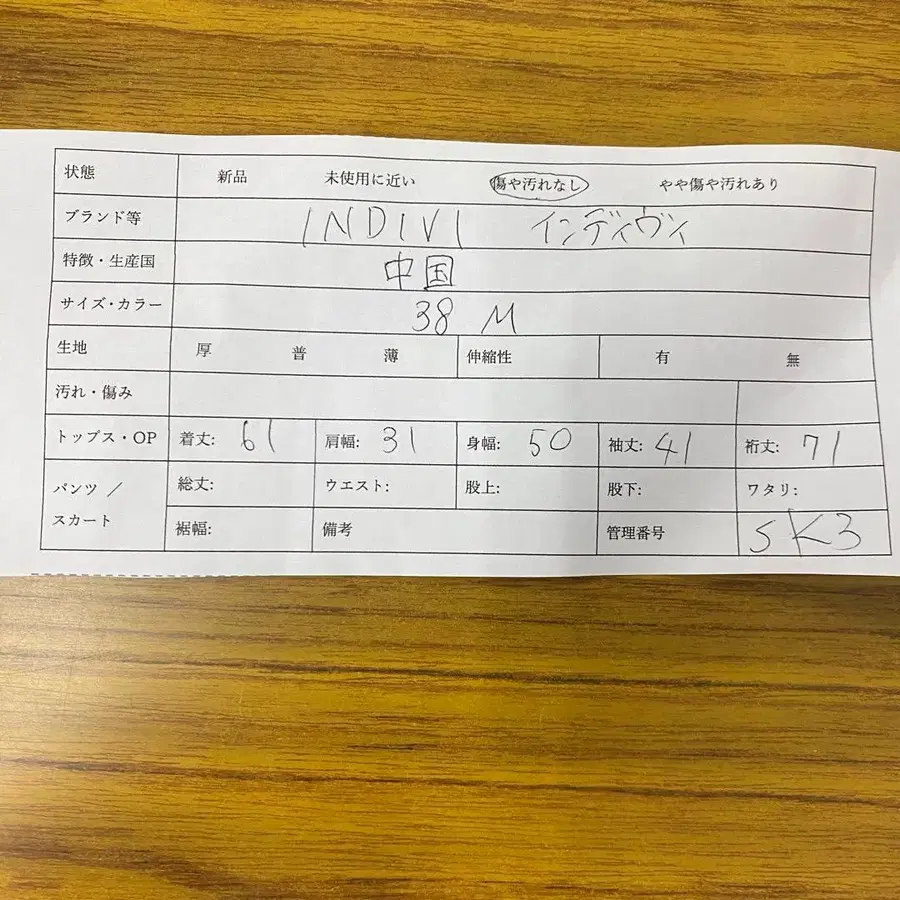 状態 新品 未使用に近い 傷や汚れなし やや傷や汚れあり
ブランド等 INDIVI インディヴィ
特徴・生産国 中国
サイズ・カラー 38 M
生地 厚 普 薄 伸縮性 有 無
汚れ・傷み
トップス・OP 着丈: 61 肩幅: 31 身幅: 50 袖丈: 41 裄丈: 71
パンツ／ 総丈: ウエスト: 股上: 股下: ワタリ:
スカート 裾幅: 備考 管理番号 SK3